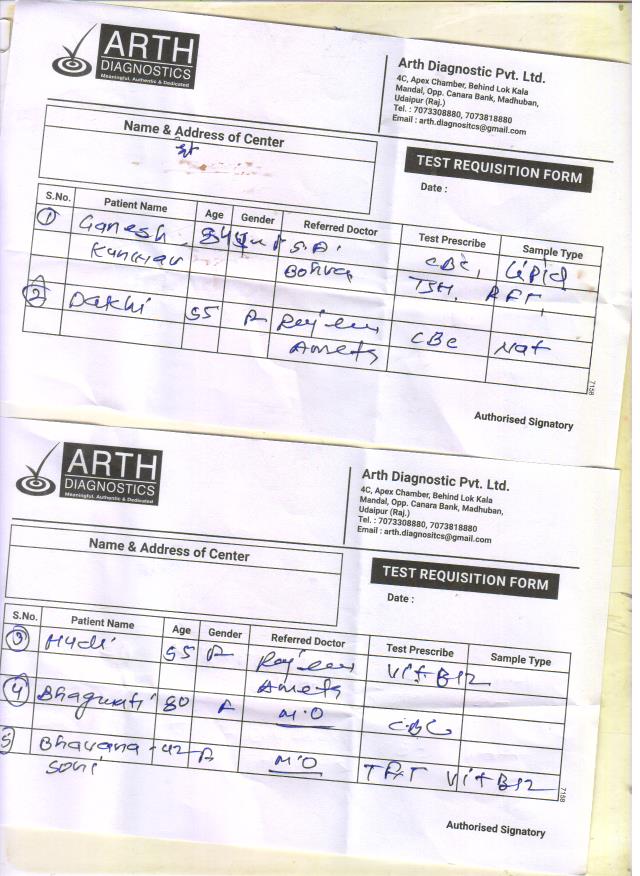 ARTH
DIAGNOSTICS
Meaningful, Authentic & Dedicated
Arth Diagnostic Pvt. Ltd.
4C, Apex Chamber, Behind Lok Kala
Mandal, Opp. Canara Bank, Madhuban,
Udaipur (Raj.)
Tel. : 7073308880, 7073818880
Email : arth.diagnositcs@gmail.com
Name & Address of Center
TEST REQUISITION FORM
Date :
S.No. Patient Name Age Gender Referred Doctor Test Prescribe Sample Type
1 Ganesh CBC, Lipid
Kunwar Bohra TSH, RFT,
2 Dakhi 55 F Rajeev CBC
Ameta
7158
Authorised Signatory
ARTH
DIAGNOSTICS
Meaningful, Authentic & Dedicated
Arth Diagnostic Pvt. Ltd.
4C, Apex Chamber, Behind Lok Kala
Mandal, Opp. Canara Bank, Madhuban,
Udaipur (Raj.)
Tel. : 7073308880, 7073818880
Email : arth.diagnositcs@gmail.com
Name & Address of Center
TEST REQUISITION FORM
Date :
S.No. Patient Name Age Gender Referred Doctor Test Prescribe Sample Type
3 55 F Rajeev Vit B12
Ameta
4 Bhagwati 80 F M.O CBC
5 Bhavana - 42 F M.O TFT Vit B12
Soni
7158
Authorised Signatory